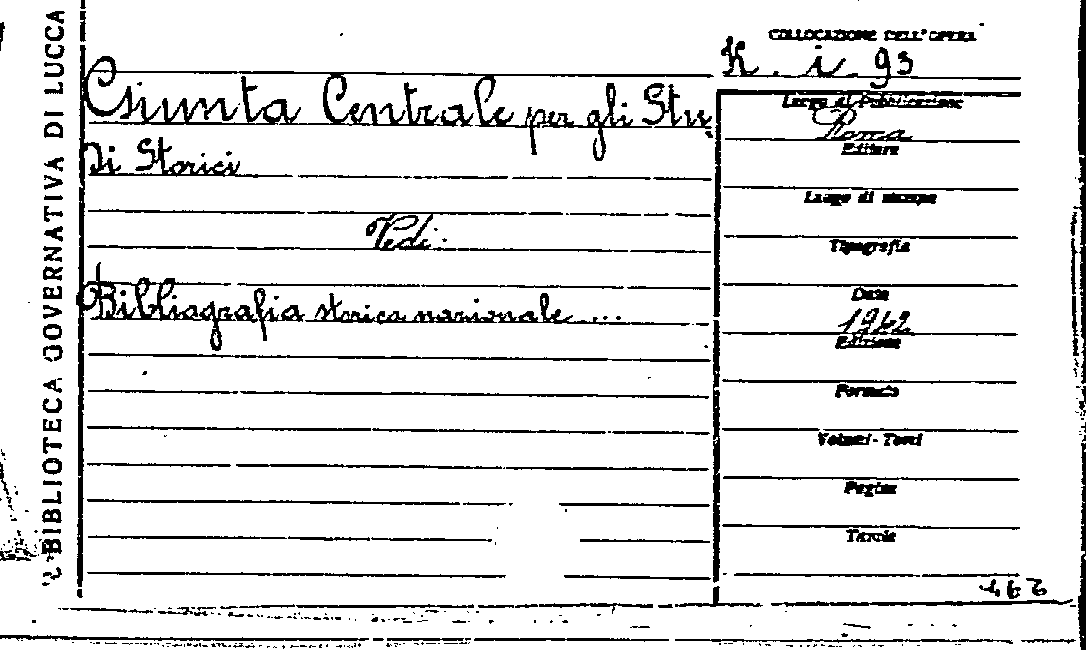 BIBLIOTECA GOVERNATIVA DI LUCCA
COLLOCAZIONE DELL'OPERA
K. i. 93
Giunta Centrale per gli Stu
di Storici
Vedi:
Bibliografia storica nazionale ...
Luogo di Pubblicazione
Roma
Editore
Luogo di stampa
Tipografia
Data
1942
Edizione
Formato
Volumi-Tomi
Pagine
Tavole